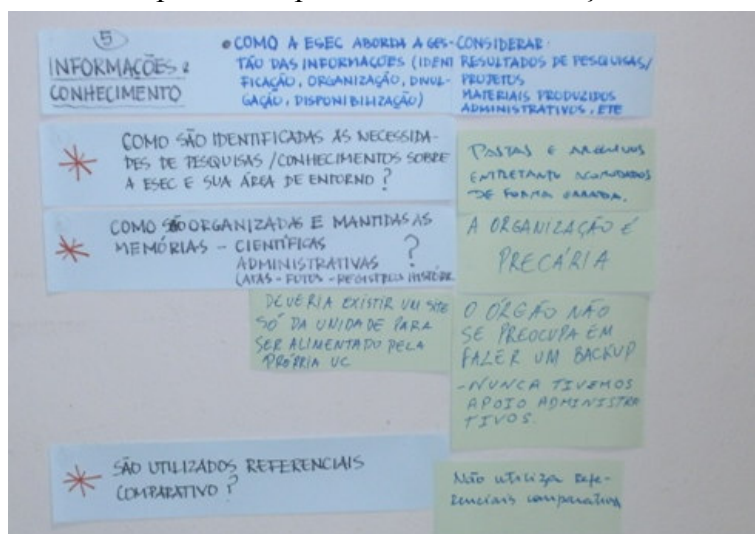 5
INFORMAÇÕES &
CONHECIMENTO
• COMO A ESEC ABORDA A GES-
TÃO DAS INFORMAÇÕES (IDENTI
FICAÇÃO, ORGANIZAÇÃO, DIVUL-
GAÇÃO, DISPONIBILIZAÇÃO)
CONSIDERAR:
RESULTADOS DE PESQUISAS/
PROJETOS
MATERIAIS PRODUZIDOS
ADMINISTRATIVOS, ETC
COMO SÃO IDENTIFICADAS AS NECESSIDA-
DES DE PESQUISAS / CONHECIMENTOS SOBRE
A ESEC E SUA ÁREA DE ENTORNO ?
PASTAS E ARQUIVOS
ENTRETANTO ACOMODADOS
DE FORMA ERRADA.
COMO SÃO ORGANIZADAS E MANTIDAS AS
MEMÓRIAS - CIENTÍFICAS
ADMINISTRATIVAS ?
(ATAS - FOTOS - REGISTROS
A ORGANIZAÇÃO É
PRECÁRIA
DEVERIA EXISTIR UM SITE
SÓ DA UNIDADE PARA
SER ALIMENTADO PELA
PRÓPRIA UC
O ÓRGÃO NÃO
SE PREOCUPA EM
FAZER UM BACKUP
- NUNCA TIVEMOS
APOIO ADMINISTRA
TIVOS.
SÃO UTILIZADOS REFERENCIAIS
COMPARATIVO ?
Não utiliza refe-
renciais comparativos